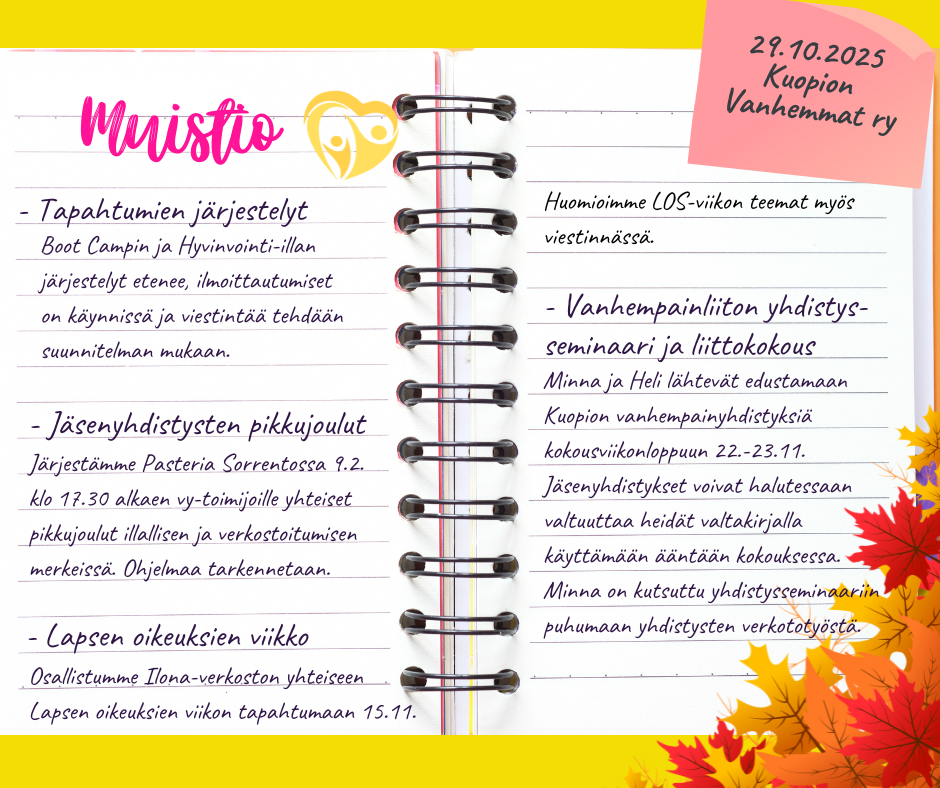 29.10.2025
Kuopion
Vanhemmat ry
Muistio
- Tapahtumien järjestelyt
Boot Campin ja Hyvinvointi-illan
järjestelyt etenee, ilmoittautumiset
on käynnissä ja viestintää tehdään
suunnitelman mukaan.
- Jäsenyhdistysten pikkujoulut
Järjestämme Pasteria Sorrentossa 9.2.
klo 17.30 alkaen vy-toimijoille yhteiset
pikkujoulut illallisen ja verkostoitumisen
merkeissä. Ohjelmaa tarkennetaan.
- Lapsen oikeuksien viikko
Osallistumme Ilona-verkoston yhteiseen
Lapsen oikeuksien viikon tapahtumaan 15.11.
Huomioimme LOS-viikon teemat myös
viestinnässä.
- Vanhempainliiton yhdistys-
seminaari ja liittokokous
Minna ja Heli lähtevät edustamaan
Kuopion vanhempainyhdistyksiä
kokousviikonloppuun 22.-23.11.
Jäsenyhdistykset voivat halutessaan
valtuuttaa heidät valtakirjalla
käyttämään ääntään kokouksessa.
Minna on kutsuttu yhdistysseminaariin
puhumaan yhdistysten verkototyöstä.